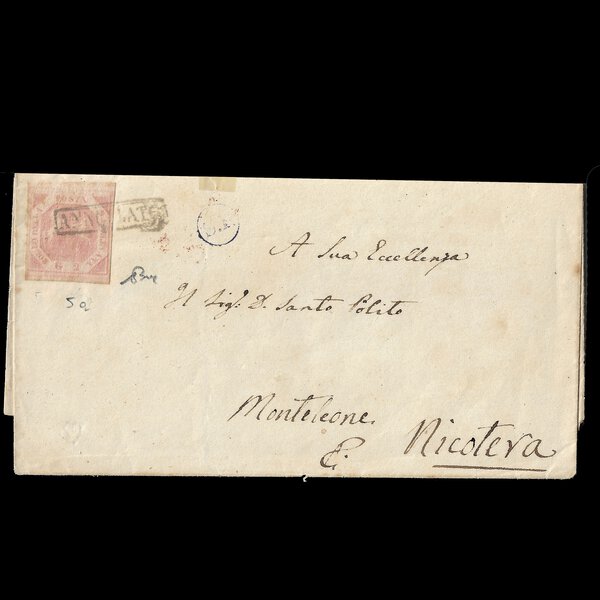 POSTA
ANNULLATO
G 2
5a
A Sua Eccellenza
Il Sig.r D. Santo Polito
Monteleone.
E. Nicotera